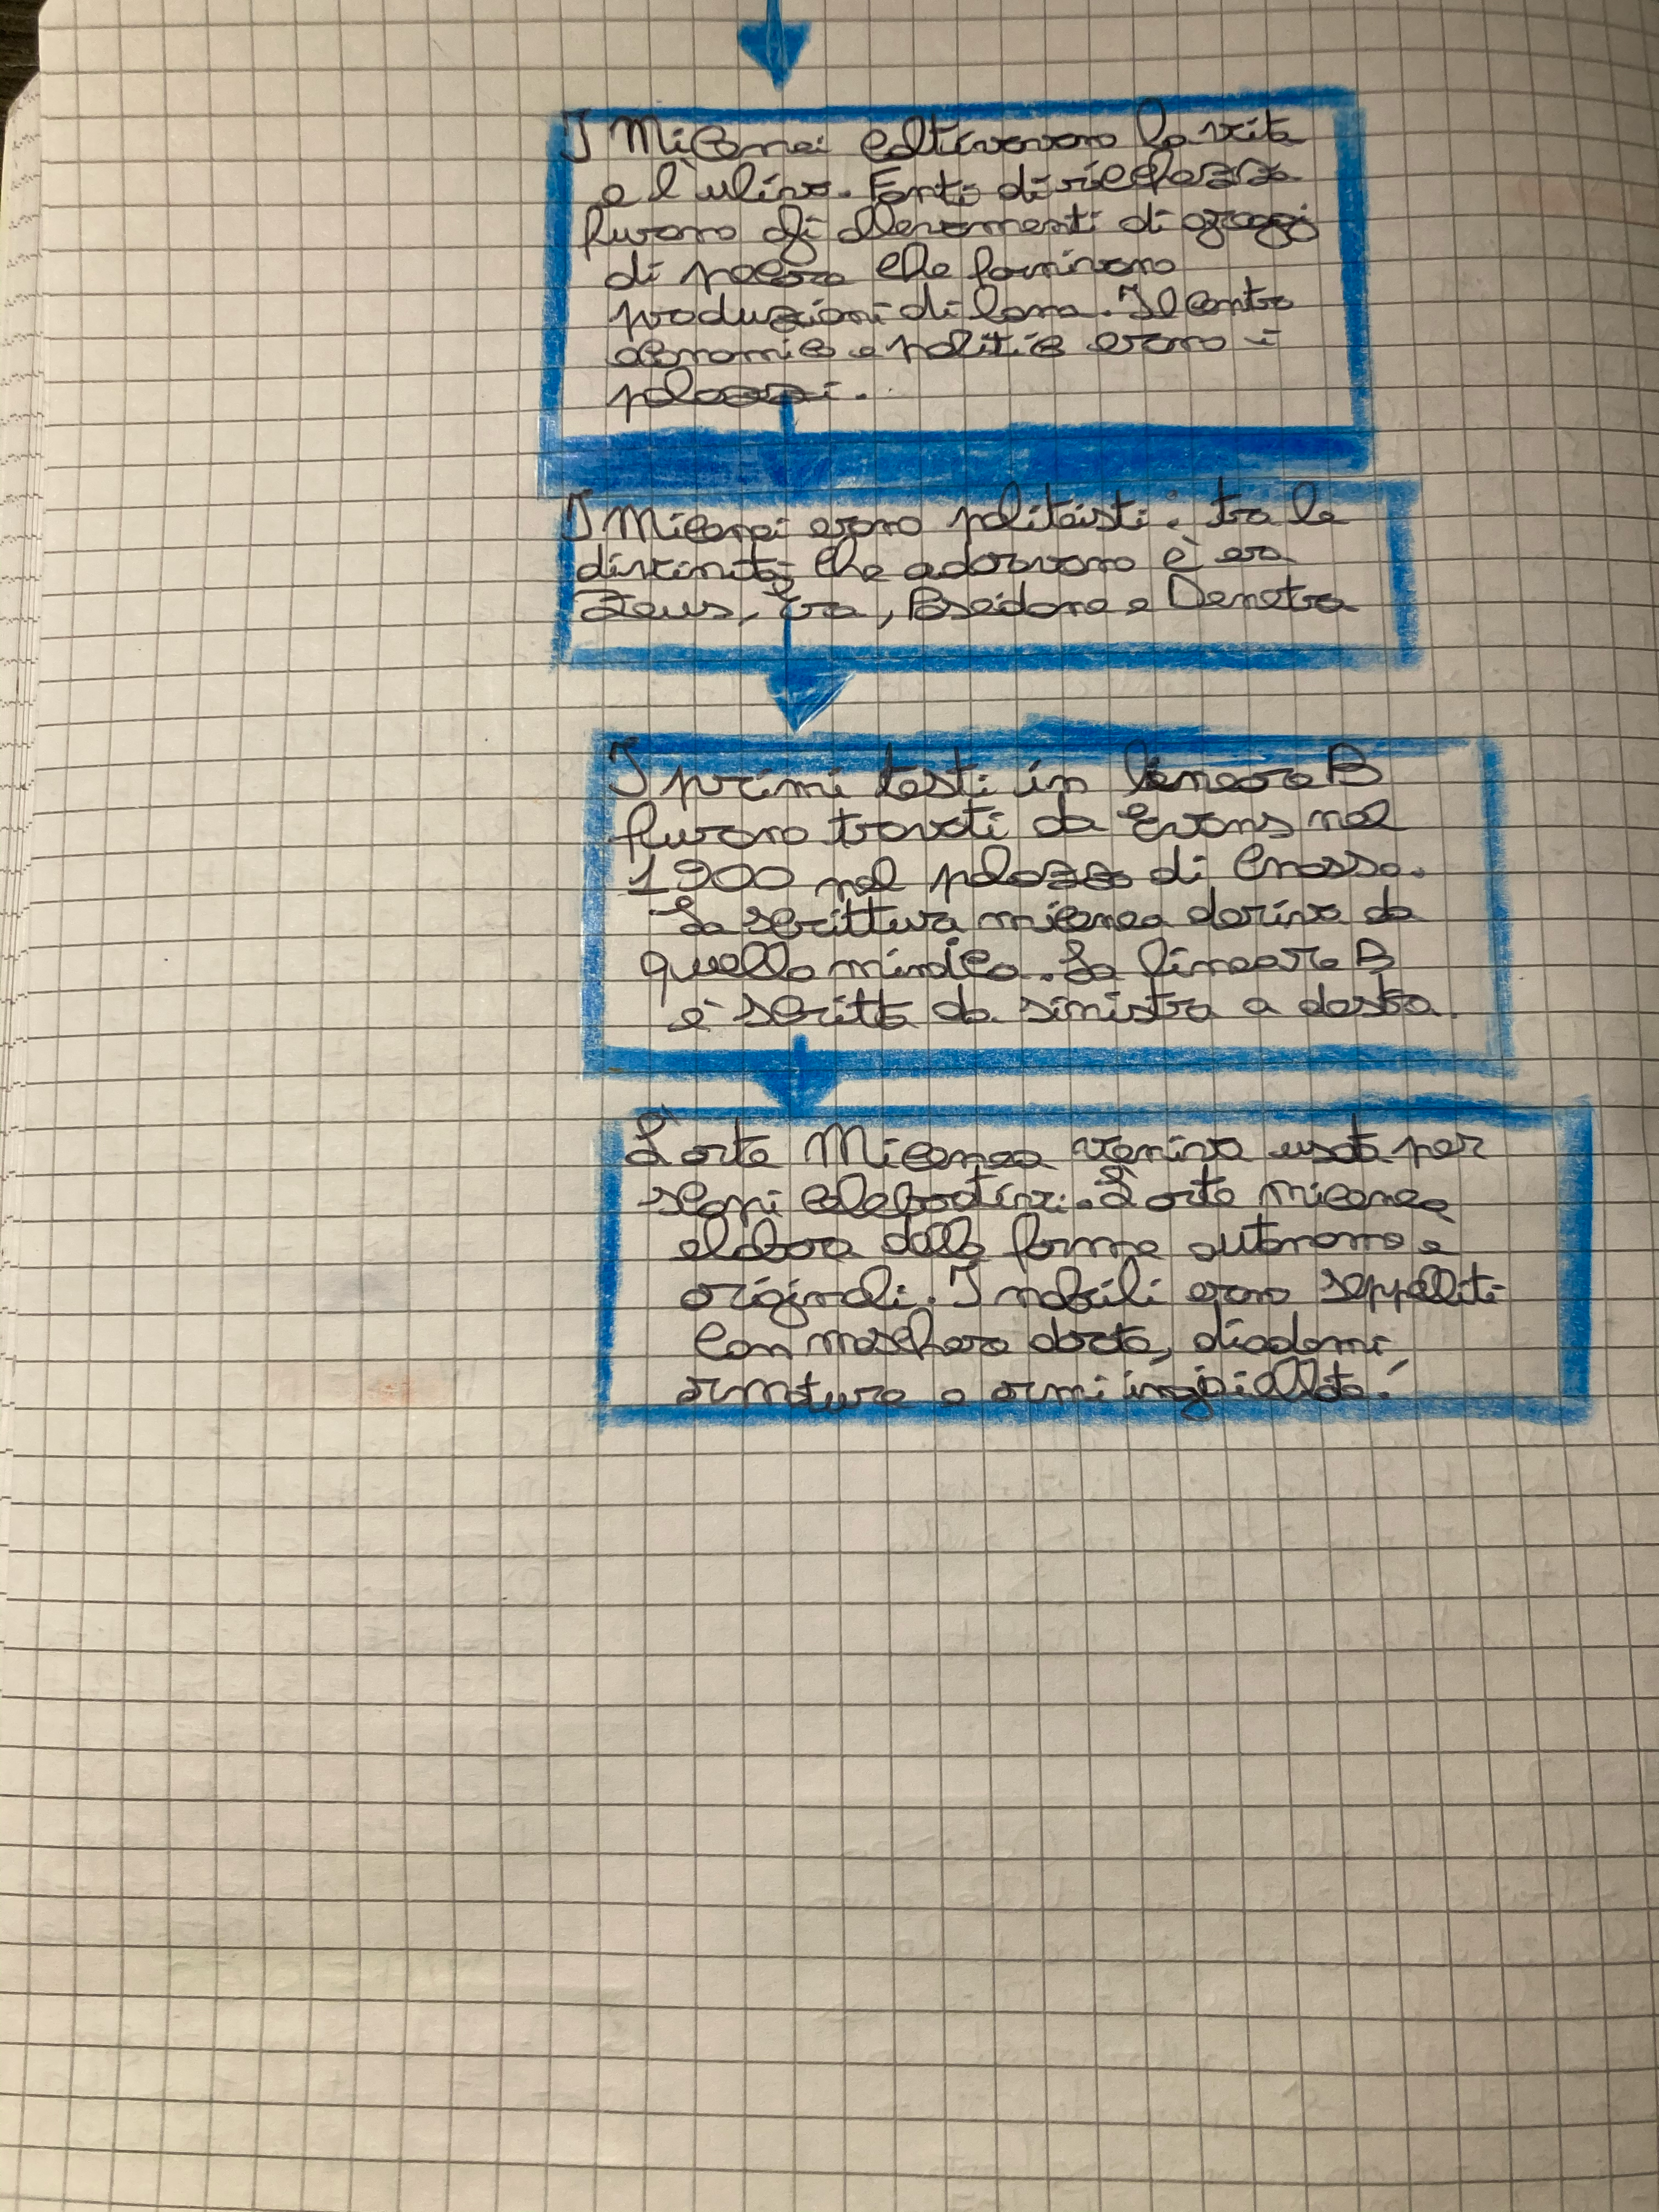 I Micenei coltivavano la vite
e l'ulivo. Fonti di ricchezza
furono gli allevamenti di greggi
di pecore che fornivano
produzioni di lana. Il centro
economico e politico erano i
palazzi.
I Micenei erano politeisti: tra le
divinità che adoravano c'era
Zeus, Era, Poseidone e Demetra
I primi testi in lineare B
furono trovati da Evans nel
1900 nel palazzo di Cnosso.
La scrittura micenea deriva da
quella minoica. La lineare B
è scritta da sinistra a destra.
L'arte Micenea veniva usata per
scopi celebrativi. L'arte micenea
elabora delle forme autonome e
originali. I nobili erano seppelliti
con maschere dorate, diademi,
armature e armi